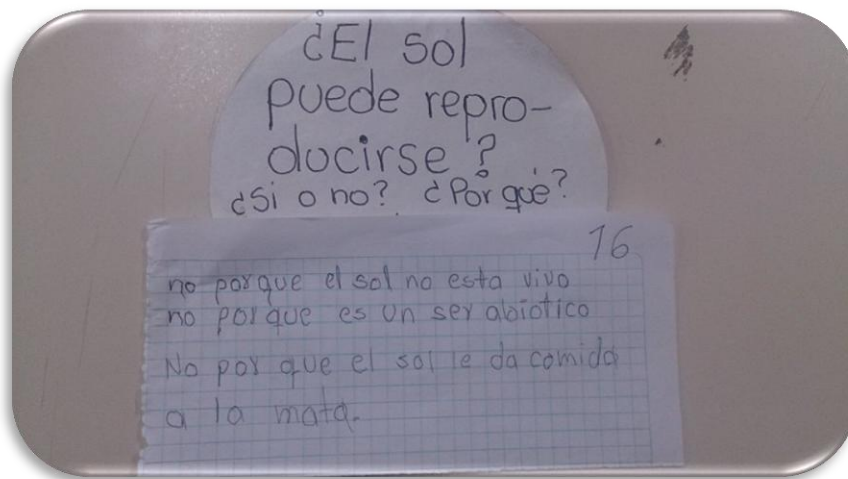 ¿El sol
puede repro-
ducirse?
¿Si o no? ¿Por qué?
16
no porque el sol no esta vivo
no porque es un ser abiotico
No por que el sol le da comida
a la mata.